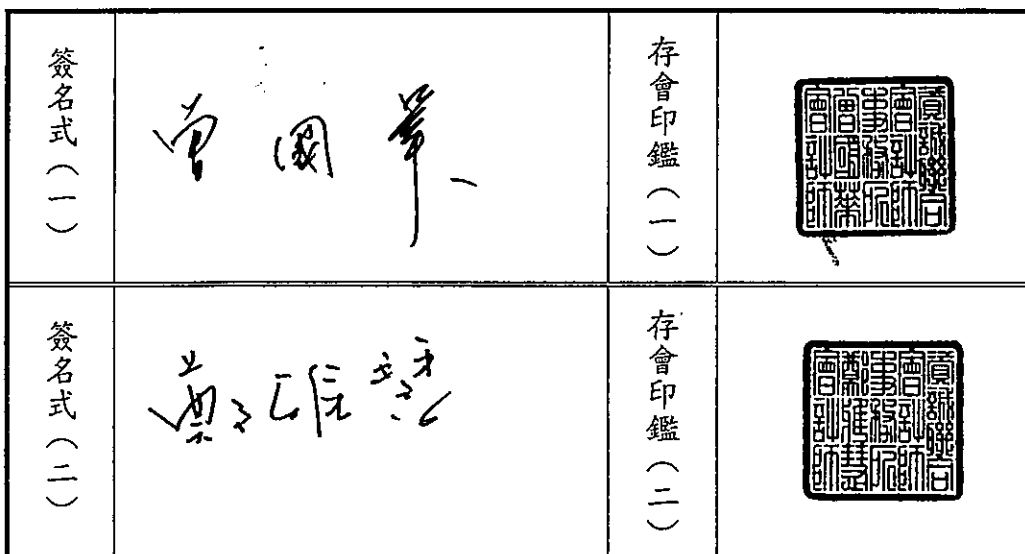 簽名式(一)
曾國華
存會印鑑(一)
資誠聯合
會計師
事務所
曾國華
會計師
簽名式(二)
鄭雅慧
存會印鑑(二)
資誠聯合
會計師
事務所
鄭雅慧
會計師